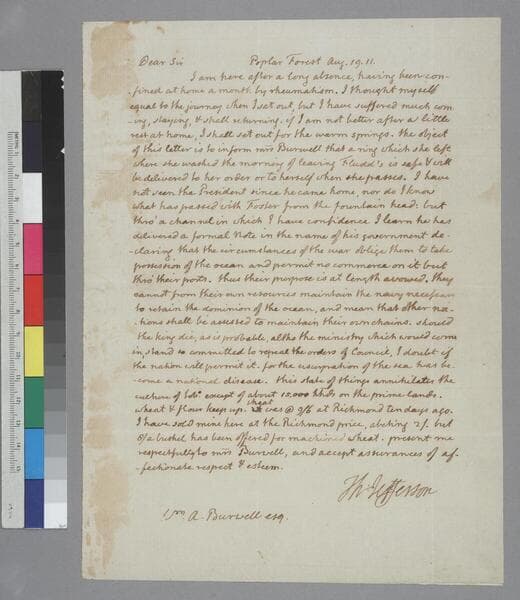 Dear Sir Poplar Forest Aug. 19. 11.
I am here after a long absence, having been con-
-fined at home a month by rheumatism. I thought myself
equal to the journey when I set out, but I have suffered much com-
-ing, staying, & shall returning. if I am not better after a little
rest at home, I shall set out for the warm springs. the object
of this letter is to inform mrs Burwell that a ring which she left
where she washed the morning of leaving Fludd's is safe & will
be delivered to her order or to herself when she passes. I have
not seen the President since he came home, nor do I know
what has passed with Foster from the fountain head: but
thro' a channel in which I have confidence I learn he has
delivered a formal Note in the name of his government de-
-claring that the circumstances of the war oblige them to take
possession of the ocean and permit no commerce on it but
thro' their ports. thus their purpose is at length avowed. they
cannot from their own resources maintain the navy necessary
to retain the dominion of the ocean, and mean that other na-
-tions shall be assessed to maintain their own chains. should
the king die, as is probable, altho the ministry which would come
in, stand so committed to repeal the orders of Council, I doubt if
the nation will permit it. for the usurpation of the sea has be-
come a national disease. this state of things annihilates the
culture of tobo. except of about 15.000 hhds on the prime lands.
wheat & flour keep up. wheat was @ 9/6 at Richmond ten days ago.
I have sold mine here at the Richmond price, abating 2/. but
8/ a bushel has been offered for machined wheat. present me
respectfully to mrs Burwell, and accept assurances of af-
-fectionate respect & esteem.
Th: Jefferson
Wm. A. Burwell esq.